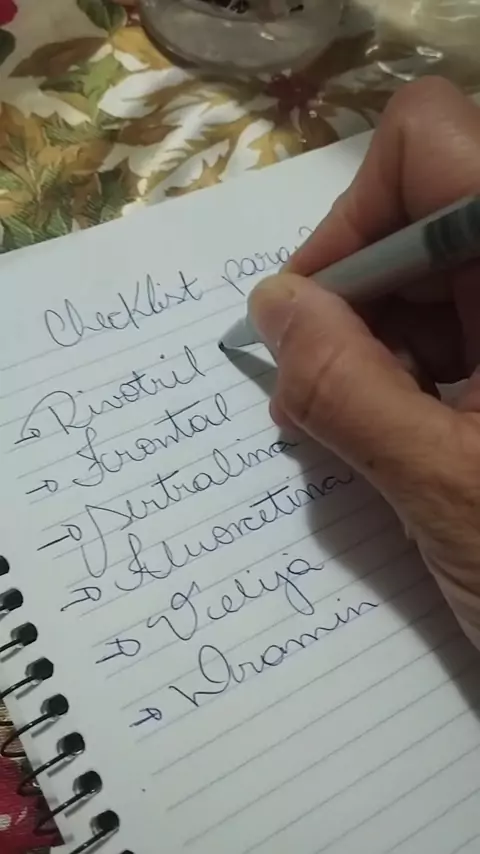 Checklist para
→ Rivotril
→ Frontal
→ Sertralina
→ Fluoxetina
→ Velija
→ Dramin